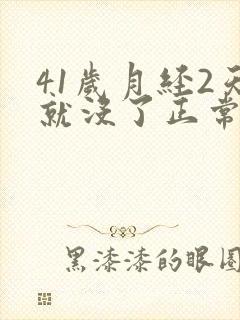 41歲月经2天
就沒了正常
黑漆漆的眼圈